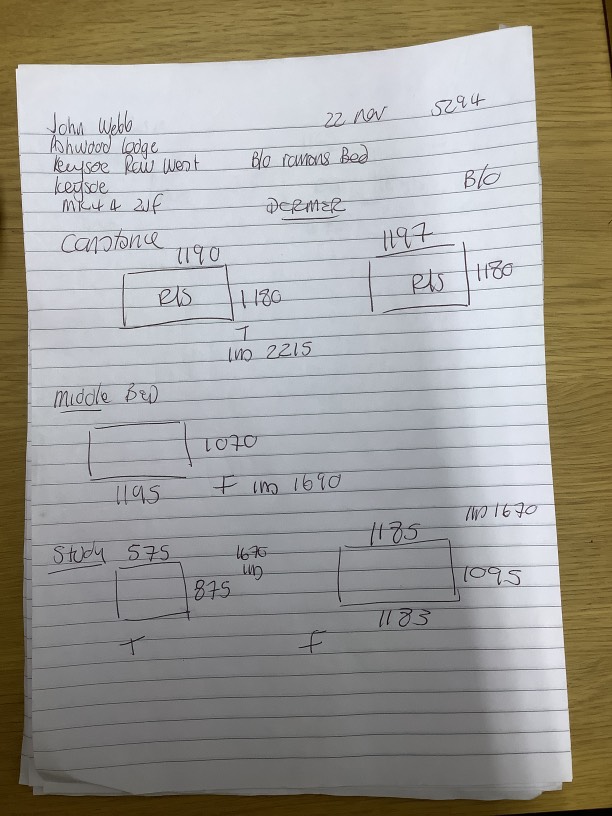 John Webb 22 nov 5294
Ashwood Lodge
Keysoe Raw West B/O ramons Bed
Keysoe B/O
MK44 2JF DERMER
Constance
1190 1197
R/S 1180 R/S 1180
T
IND 2215
Middle Bed
1070
1195 F IND 1690
IND 1670
Study 575 1670 1185
IND
875 1095
1183
T F